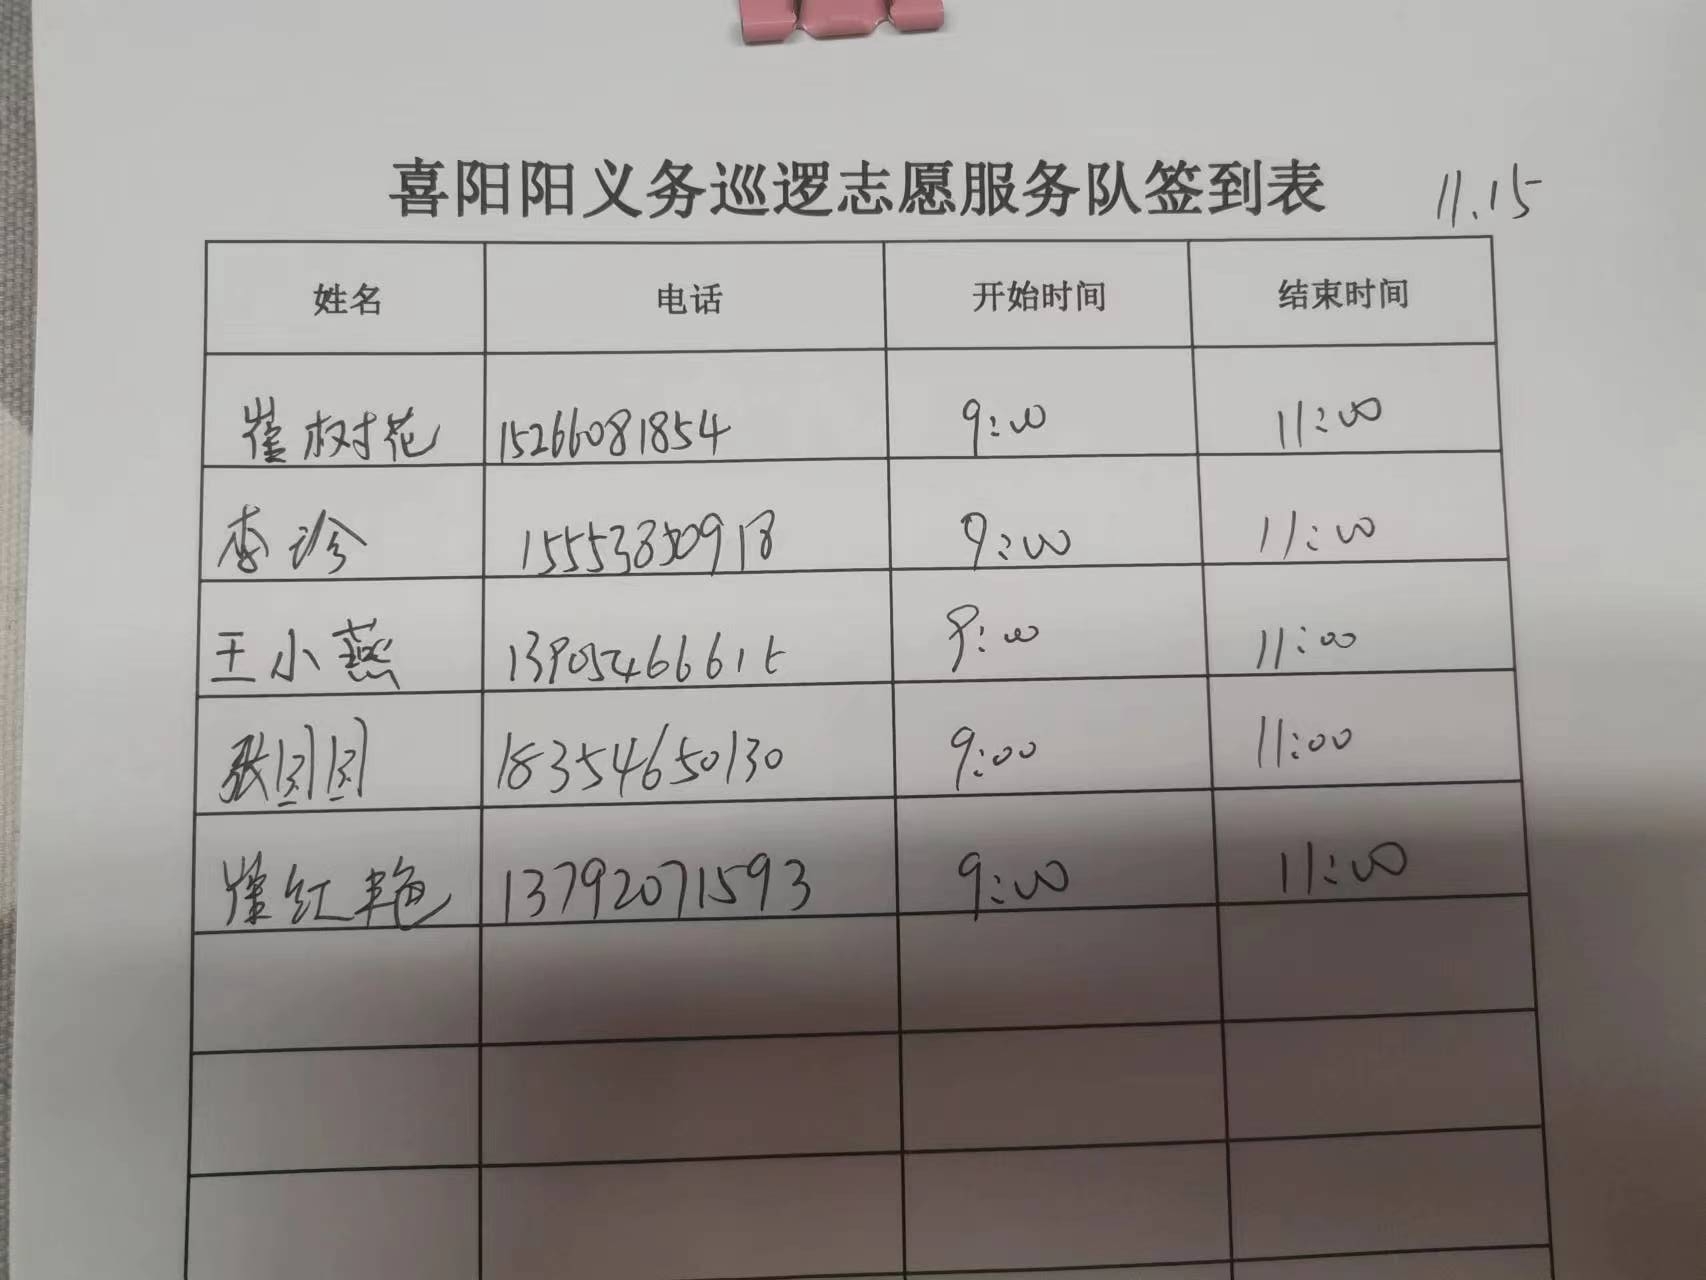 喜阳阳义务巡逻志愿服务队签到表 11.15
姓名 电话 开始时间 结束时间
崔树花 15266081854 9:00 11:00
李诊 15553850918 9:00 11:00
王小燕 9:00 11:00
张团团 18354650130 9:00 11:00
崔红艳 13792071593 9:00 11:00